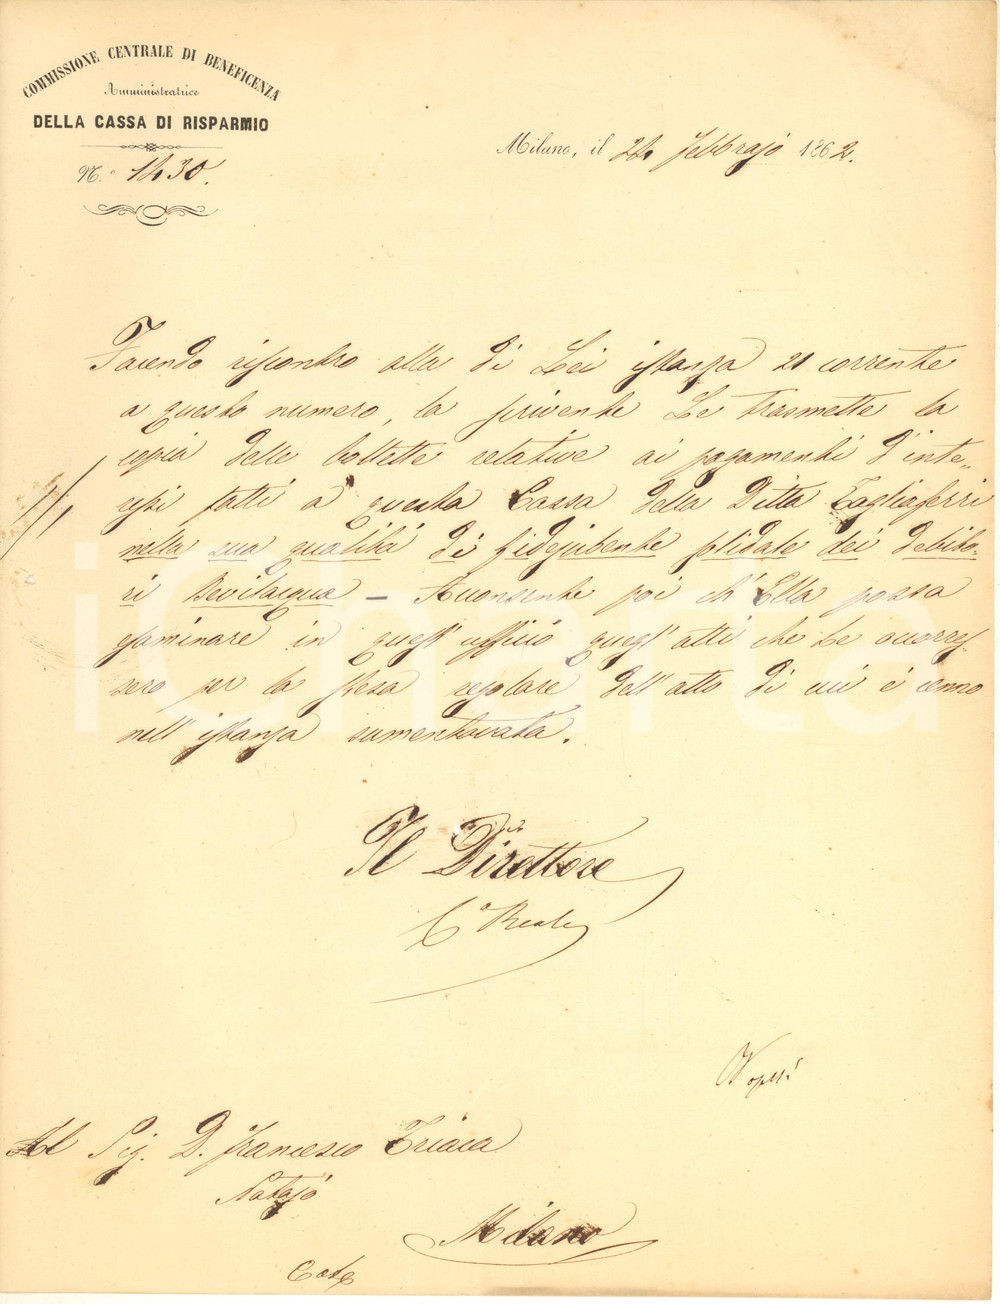 COMMISSIONE CENTRALE DI BENEFICENZA
Amministratrice
DELLA CASSA DI RISPARMIO
N.° 1430.
Milano, il 24 Febbrajo 1862.
Facendo riscontro alla di Lei istanza 21 corrente
a questo numero, la scrivente Le trasmette la
copia delle bollette relative ai pagamenti d'inte-
ressi fatti a questa Cassa della Ditta Tagliaferri
nella sua qualità di fidejubente solidale dei debito-
ri Bevilacqua – Acconsente poi ch'Ella possa
esaminare in quest'ufficio quegl'atti che Le occorres-
sero per la stesa regolare dell'atto di cui è cenno
nell'istanza sumentovata.
Il Direttore
Reale
Al Sig. D. Francesco Triaca
Notajo
Milano
iCharta